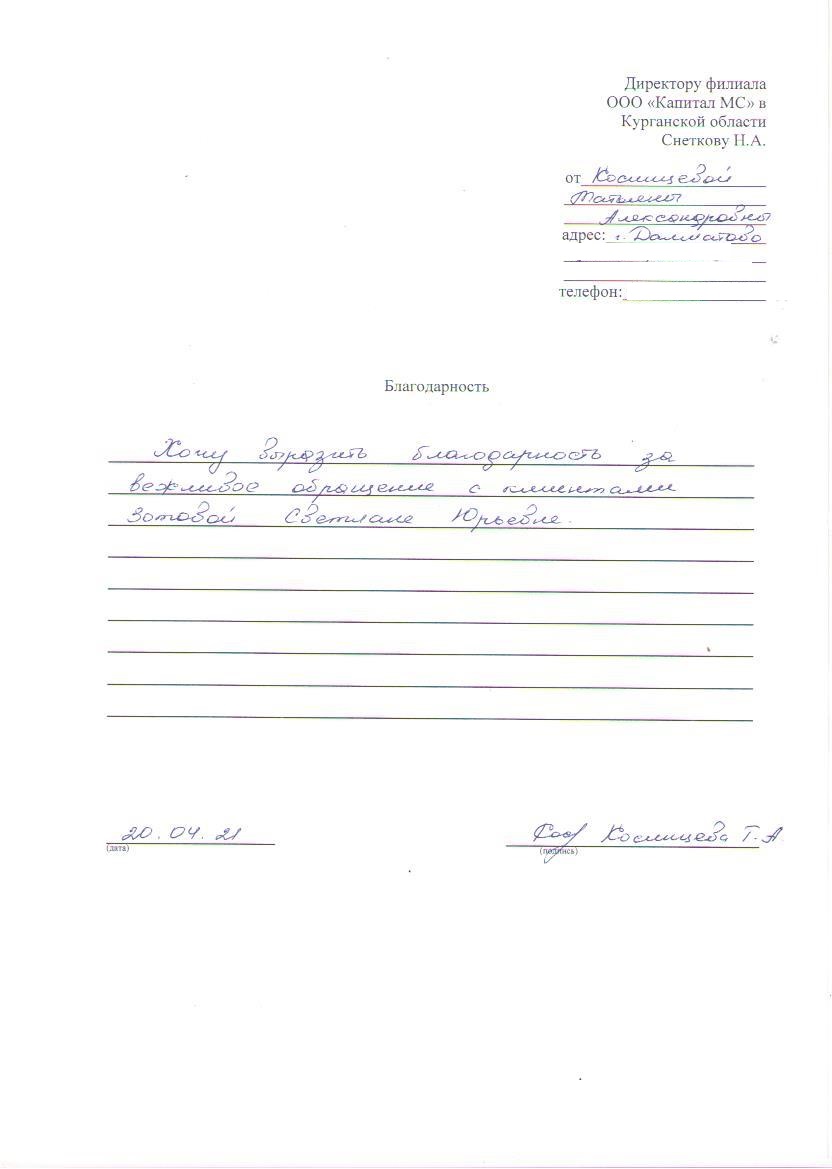 Директору филиала
ООО «Капитал МС» в
Курганской области
Снеткову Н.А.
от Космицевой
Татьяны
Александровны
адрес: г. Далматово
телефон:
Благодарность
Хочу выразить благодарность за
вежливое обращение с клиентами
Зотовой Светлане Юрьевне.
20.04.21 Космицева Т.А
(дата) (подпись)